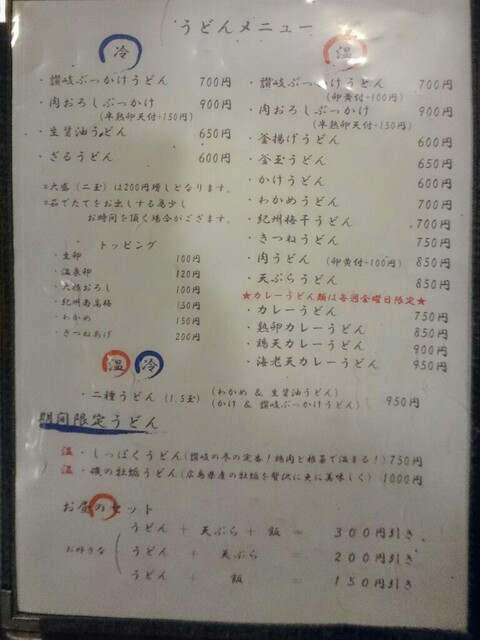 うどんメニュー
冷
・讃岐ぶっかけうどん 700円
・肉おろしぶっかけ 900円
(半熟卵天付+150円)
・生醤油うどん 650円
・ざるうどん 600円
※大盛(二玉)は200円増しとなります。
※茹でたてをお出しする為少し
お時間を頂く場合がございます。
トッピング
・生卵 100円
・温泉卵 120円
・大根おろし 100円
・紀州南高梅 150円
・わかめ 150円
・きつねあげ 200円
温
・讃岐ぶっかけうどん 700円
(卵黄付+100円)
・肉おろしぶっかけ 900円
(半熟卵天付+150円)
・釜揚げうどん 600円
・釜玉うどん 650円
・かけうどん 600円
・わかめうどん 700円
・紀州梅干うどん 700円
・きつねうどん 750円
・肉うどん (卵黄付+100円) 850円
・天ぷらうどん 850円
★カレーうどん類は毎週金曜日限定★
・カレーうどん 750円
・熟卵カレーうどん 850円
・鶏天カレーうどん 900円
・海老天カレーうどん 950円
温 冷
・二種うどん (1.5玉) (わかめ & 生醤油うどん)
(かけ & 讃岐ぶっかけうどん) 950円
期間限定うどん
温・しっぽくうどん(讃岐の冬の定番!鶏肉と根菜で温まる!) 750円
温・磯の牡蠣うどん(広島県産の牡蠣を贅沢に更に美味しく) 1000円
お昼のセット
お好きな
うどん + 天ぷら + 飯 = 300円引き
うどん + 天ぷら = 200円引き
うどん + 飯 = 150円引き